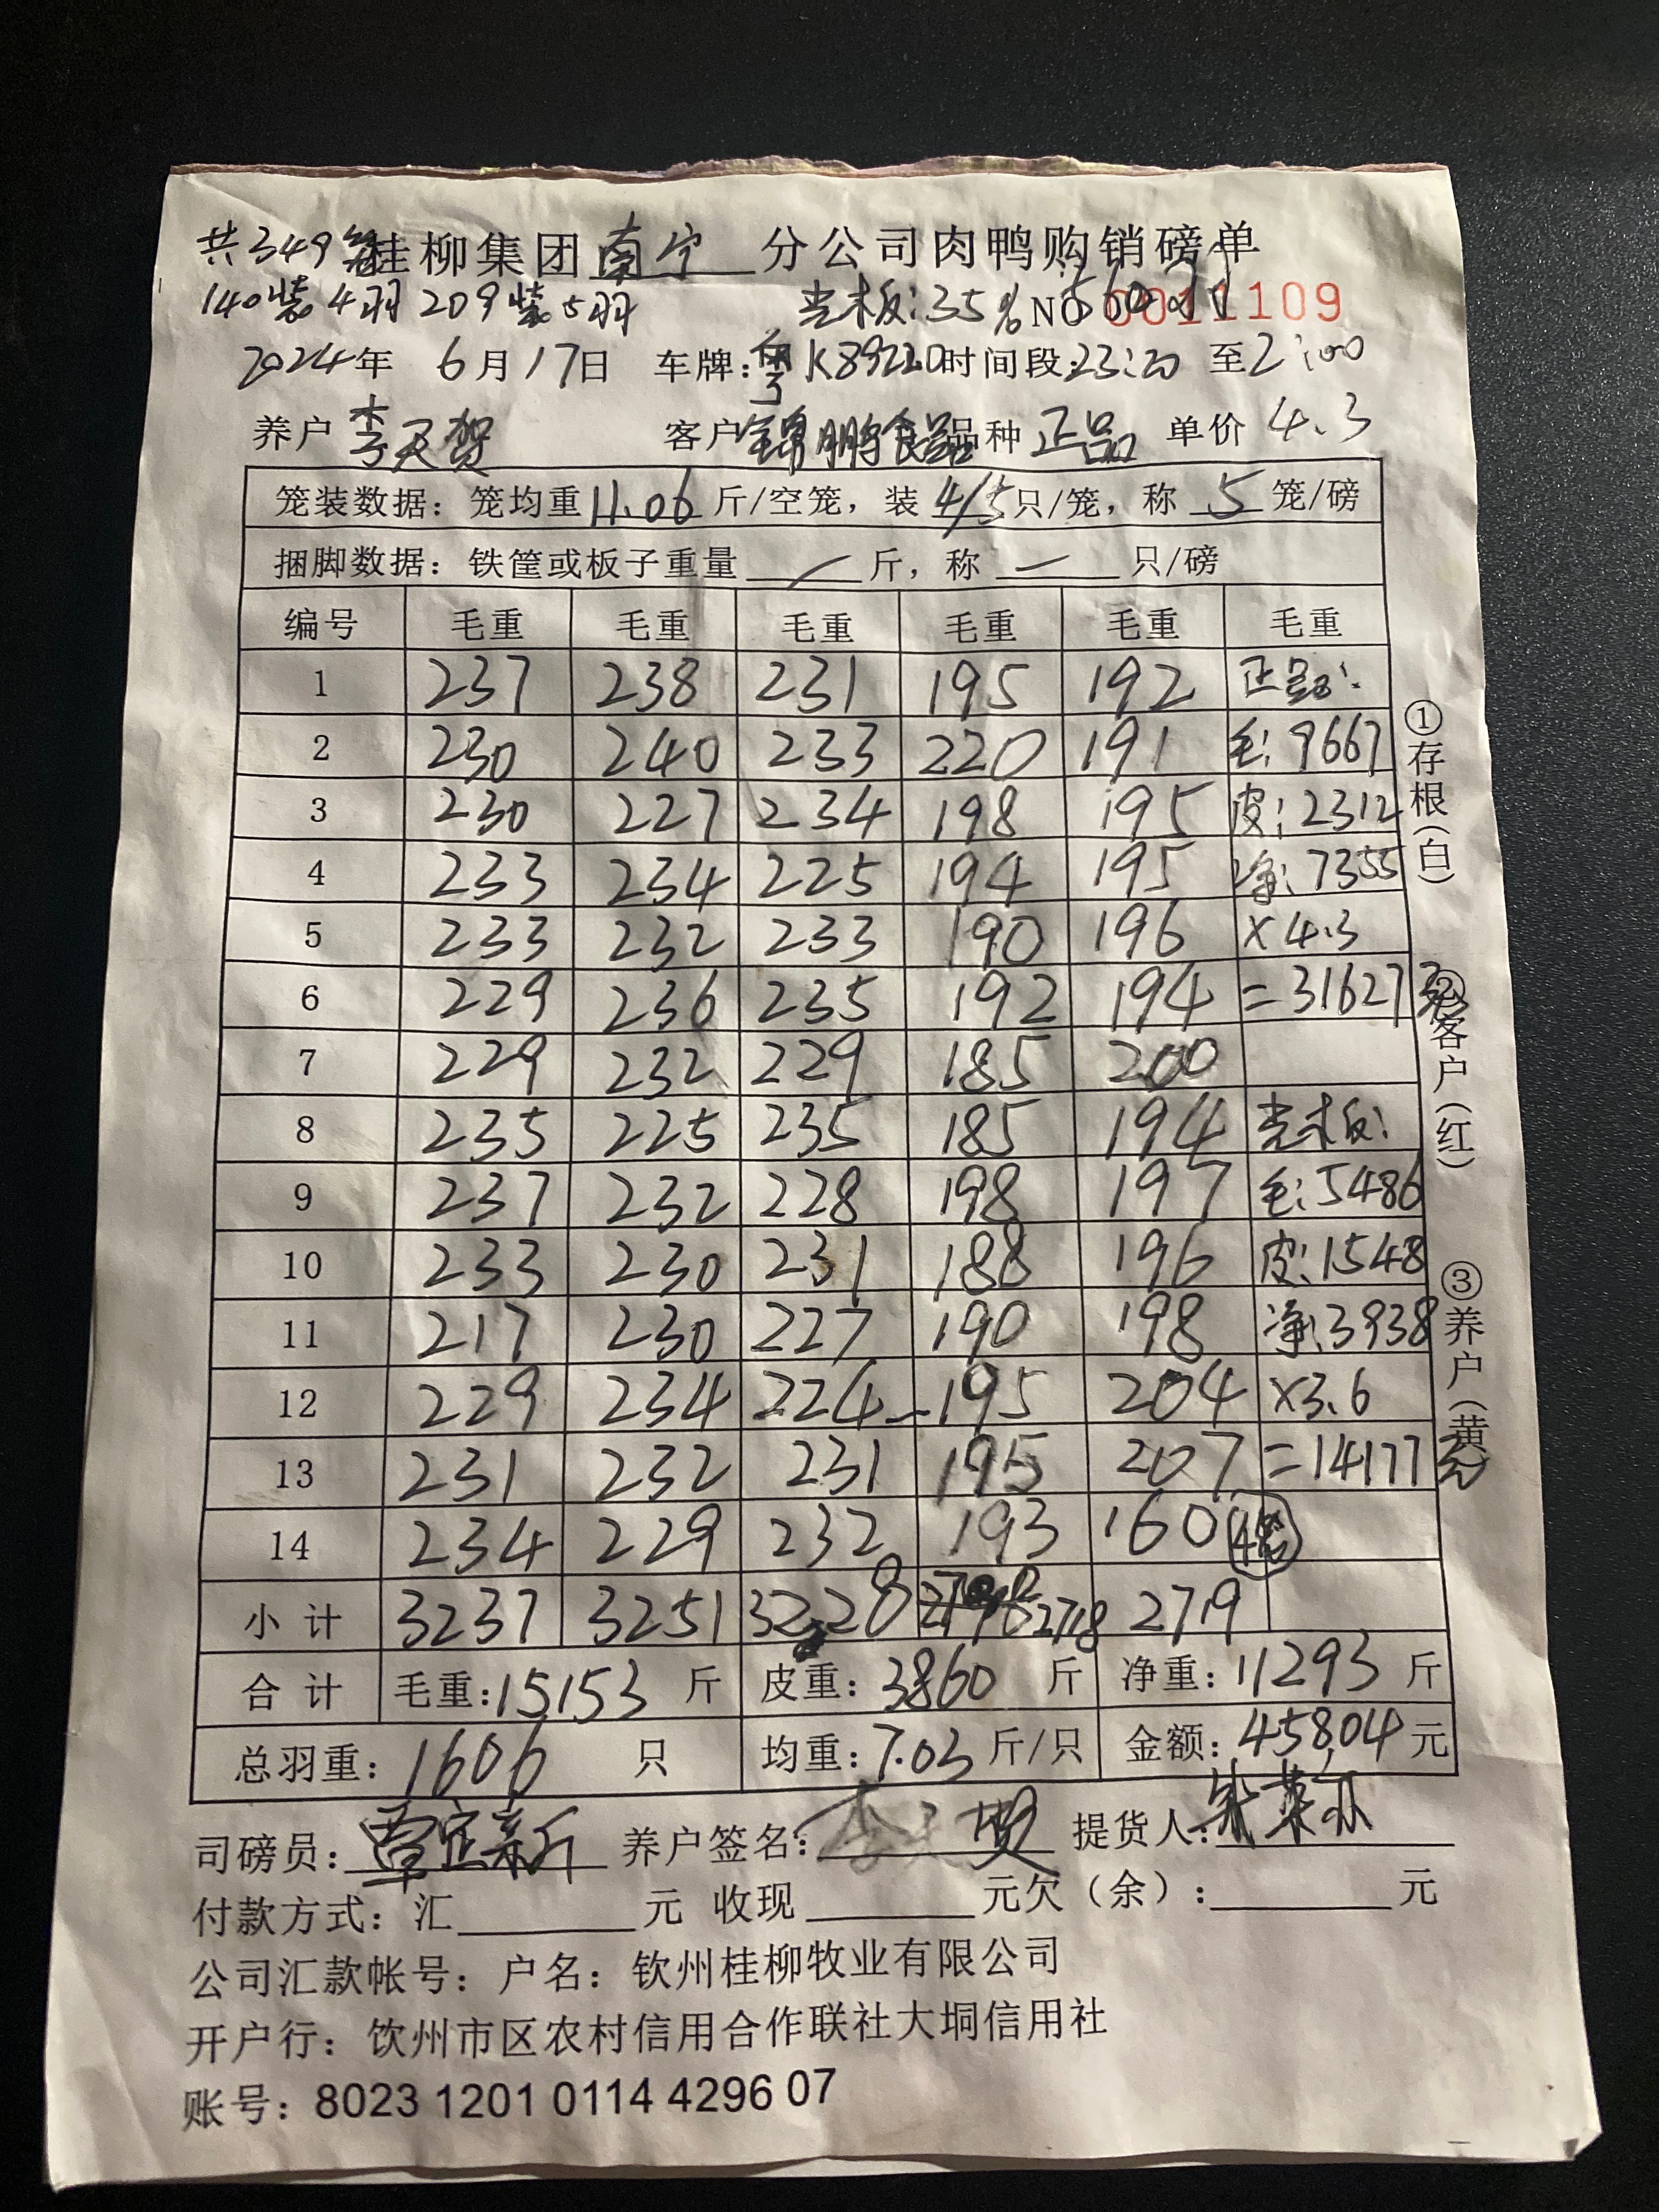 共349笼桂柳集团南宁分公司肉鸭购销磅单
140装4羽 209装5羽 光板:35% 560羽 NO 0011109
2024年 6月17日 车牌:粤K89220 时间段:23:20 至2:00
养户 李天贺 客户 锦鹏食品 品种 正品 单价 4.3
笼装数据：笼均重11.06斤/空笼，装4/5只/笼，称 5 笼/磅
捆脚数据：铁筐或板子重量 — 斤，称 — 只/磅
编号 毛重 毛重 毛重 毛重 毛重 毛重
1 237 238 231 195 192 正品:
2 230 240 233 220 191 毛:9667
3 230 227 234 198 195 皮:2312
4 233 234 225 194 195 净:7355
5 233 232 233 190 196 ×4.3
6 229 236 235 192 194 =31627元
7 229 232 229 185 200
8 235 225 235 185 194 光板:
9 237 232 228 198 197 毛:5486
10 233 230 231 188 196 皮:1548
11 217 230 227 190 198 净:3938
12 229 234 224 195 204 ×3.6
13 231 232 231 195 207 =14177元
14 234 229 232 193 160 4笼
小计 3237 3251 3228 2718 2719
合计 毛重:15153 斤 皮重:3860 斤 净重:11293 斤
总羽重:1606 只 均重:7.03 斤/只 金额:45804元
司磅员:覃定新 养户签名:李天贺 提货人:
付款方式：汇 元 收现 元欠（余）: 元
公司汇款帐号：户名：钦州桂柳牧业有限公司
开户行：饮州市区农村信用合作联社大垌信用社
账号：8023 1201 0114 4296 07
①存根(白)
②客户(红)
③养户(黄)